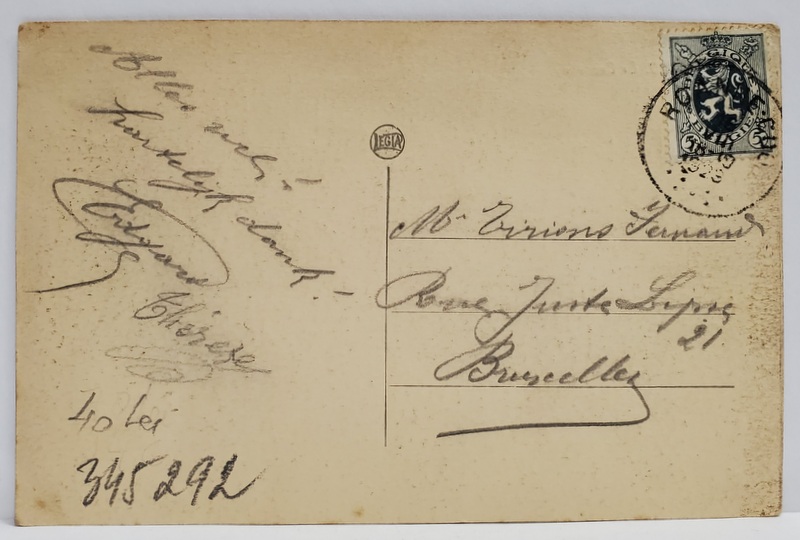 Alles wel -
hartelijk dank. -
Edgard
Thérèse
40 Lei
345292
LEGIA
BELGIQUE
BELGIE
5
Mr Tirions Fernand
Rue Juste Lipse
21
Bruxelles